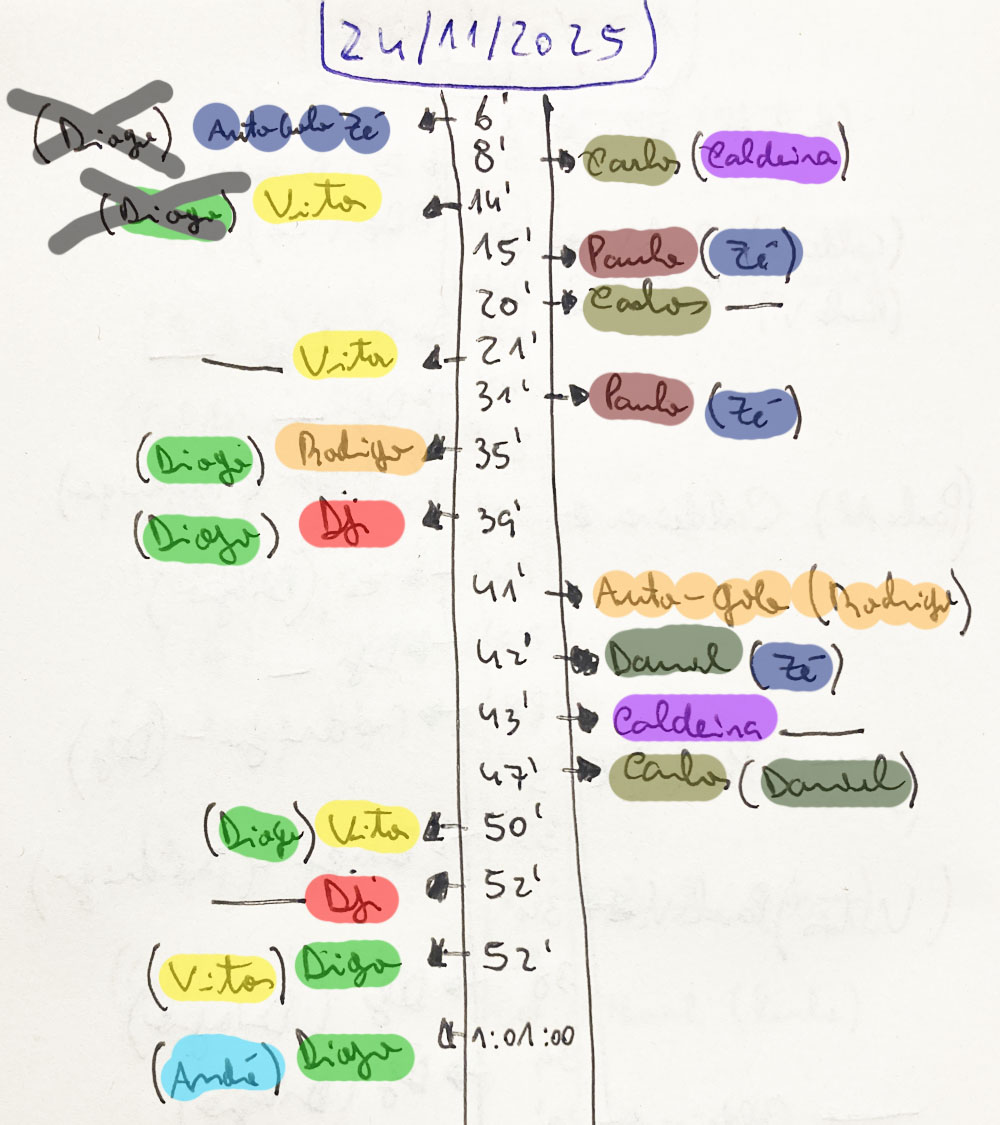 24/11/2025
(Diogo) Auto-Golo Zé 6'
8' Carlos (Caldeira)
(Diogo) Vitor 14'
15' Paulo (Zé)
20' Carlos —
— Vitor 21'
31' Paulo (Zé)
(Diogo) Rodrigo 35'
(Diogo) Dji 39'
41' Auto-golo (Rodrigo)
42' Daniel (Zé)
43' Caldeira —
47' Carlos (Daniel)
(Diogo) Vitor 50'
— Dji 52'
(Vitor) Diogo 52'
(André) Diogo 1:01:00